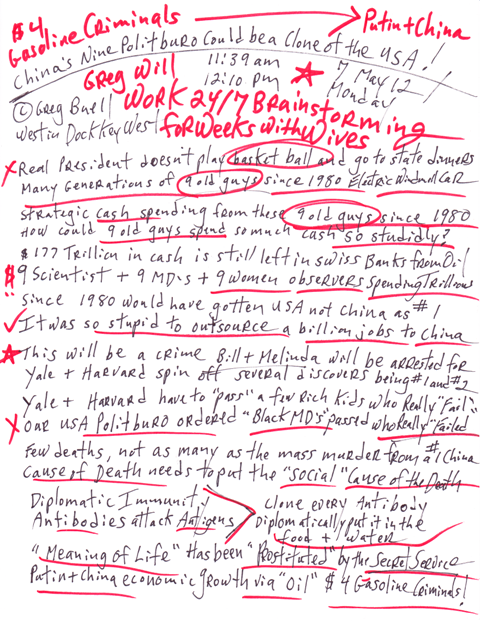 $4
Gasoline Criminals → Putin + China
China's Nine Politburo Could be a Clone of the USA!
Greg Will 11:39 am 7 May 12
12:10 pm Monday
© Greg Buell Work 24/7 Brainstorming
Westin Dock Key West for Weeks with Wives
Real President doesn't play basket ball and go to state dinners
Many Generations of 9 old guys since 1980 Electric Windmill Car
Strategic cash spending from these 9 old guys since 1980
How could 9 old guys spend so much cash so studidly?
$177 Trillion in cash is still left in Swiss Banks from Oil
$ 9 Scientist + 9 MD's + 9 women observers Spending Trillions
since 1980 would have gotten USA not China as #1
It was so stupid to outsource a billion jobs to China
This will be a crime Bill + Melinda will be arrested for
Yale + Harvard spin off several discovers being #1 and #2
Yale + Harvard have to "pass" a few Rich Kids who Really "Fail"
our USA Politburo ordered "Black MD's" passed who Really "Failed
Few deaths, not as many as the mass murder from a #1 China
Cause of Death needs to put the "social" Cause of the Death
Diplomatic Immunity
Antibodies attack Antigens
Clone every Antibody
Diplomatically put it in the
food + water
"Meaning of Life" Has been "Prostituted" by the Secret Service
Putin + China economic growth via "Oil" $4 Gasoline Criminals!